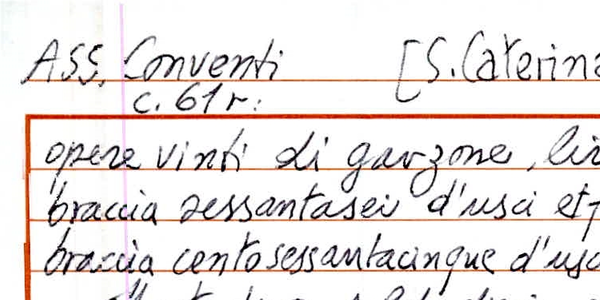 ASS. Conventi [S. Caterina
c. 61r.
opere vinti di garzone, lir
braccia sessantasei d'usci et
braccia centosessantacinque d'usc